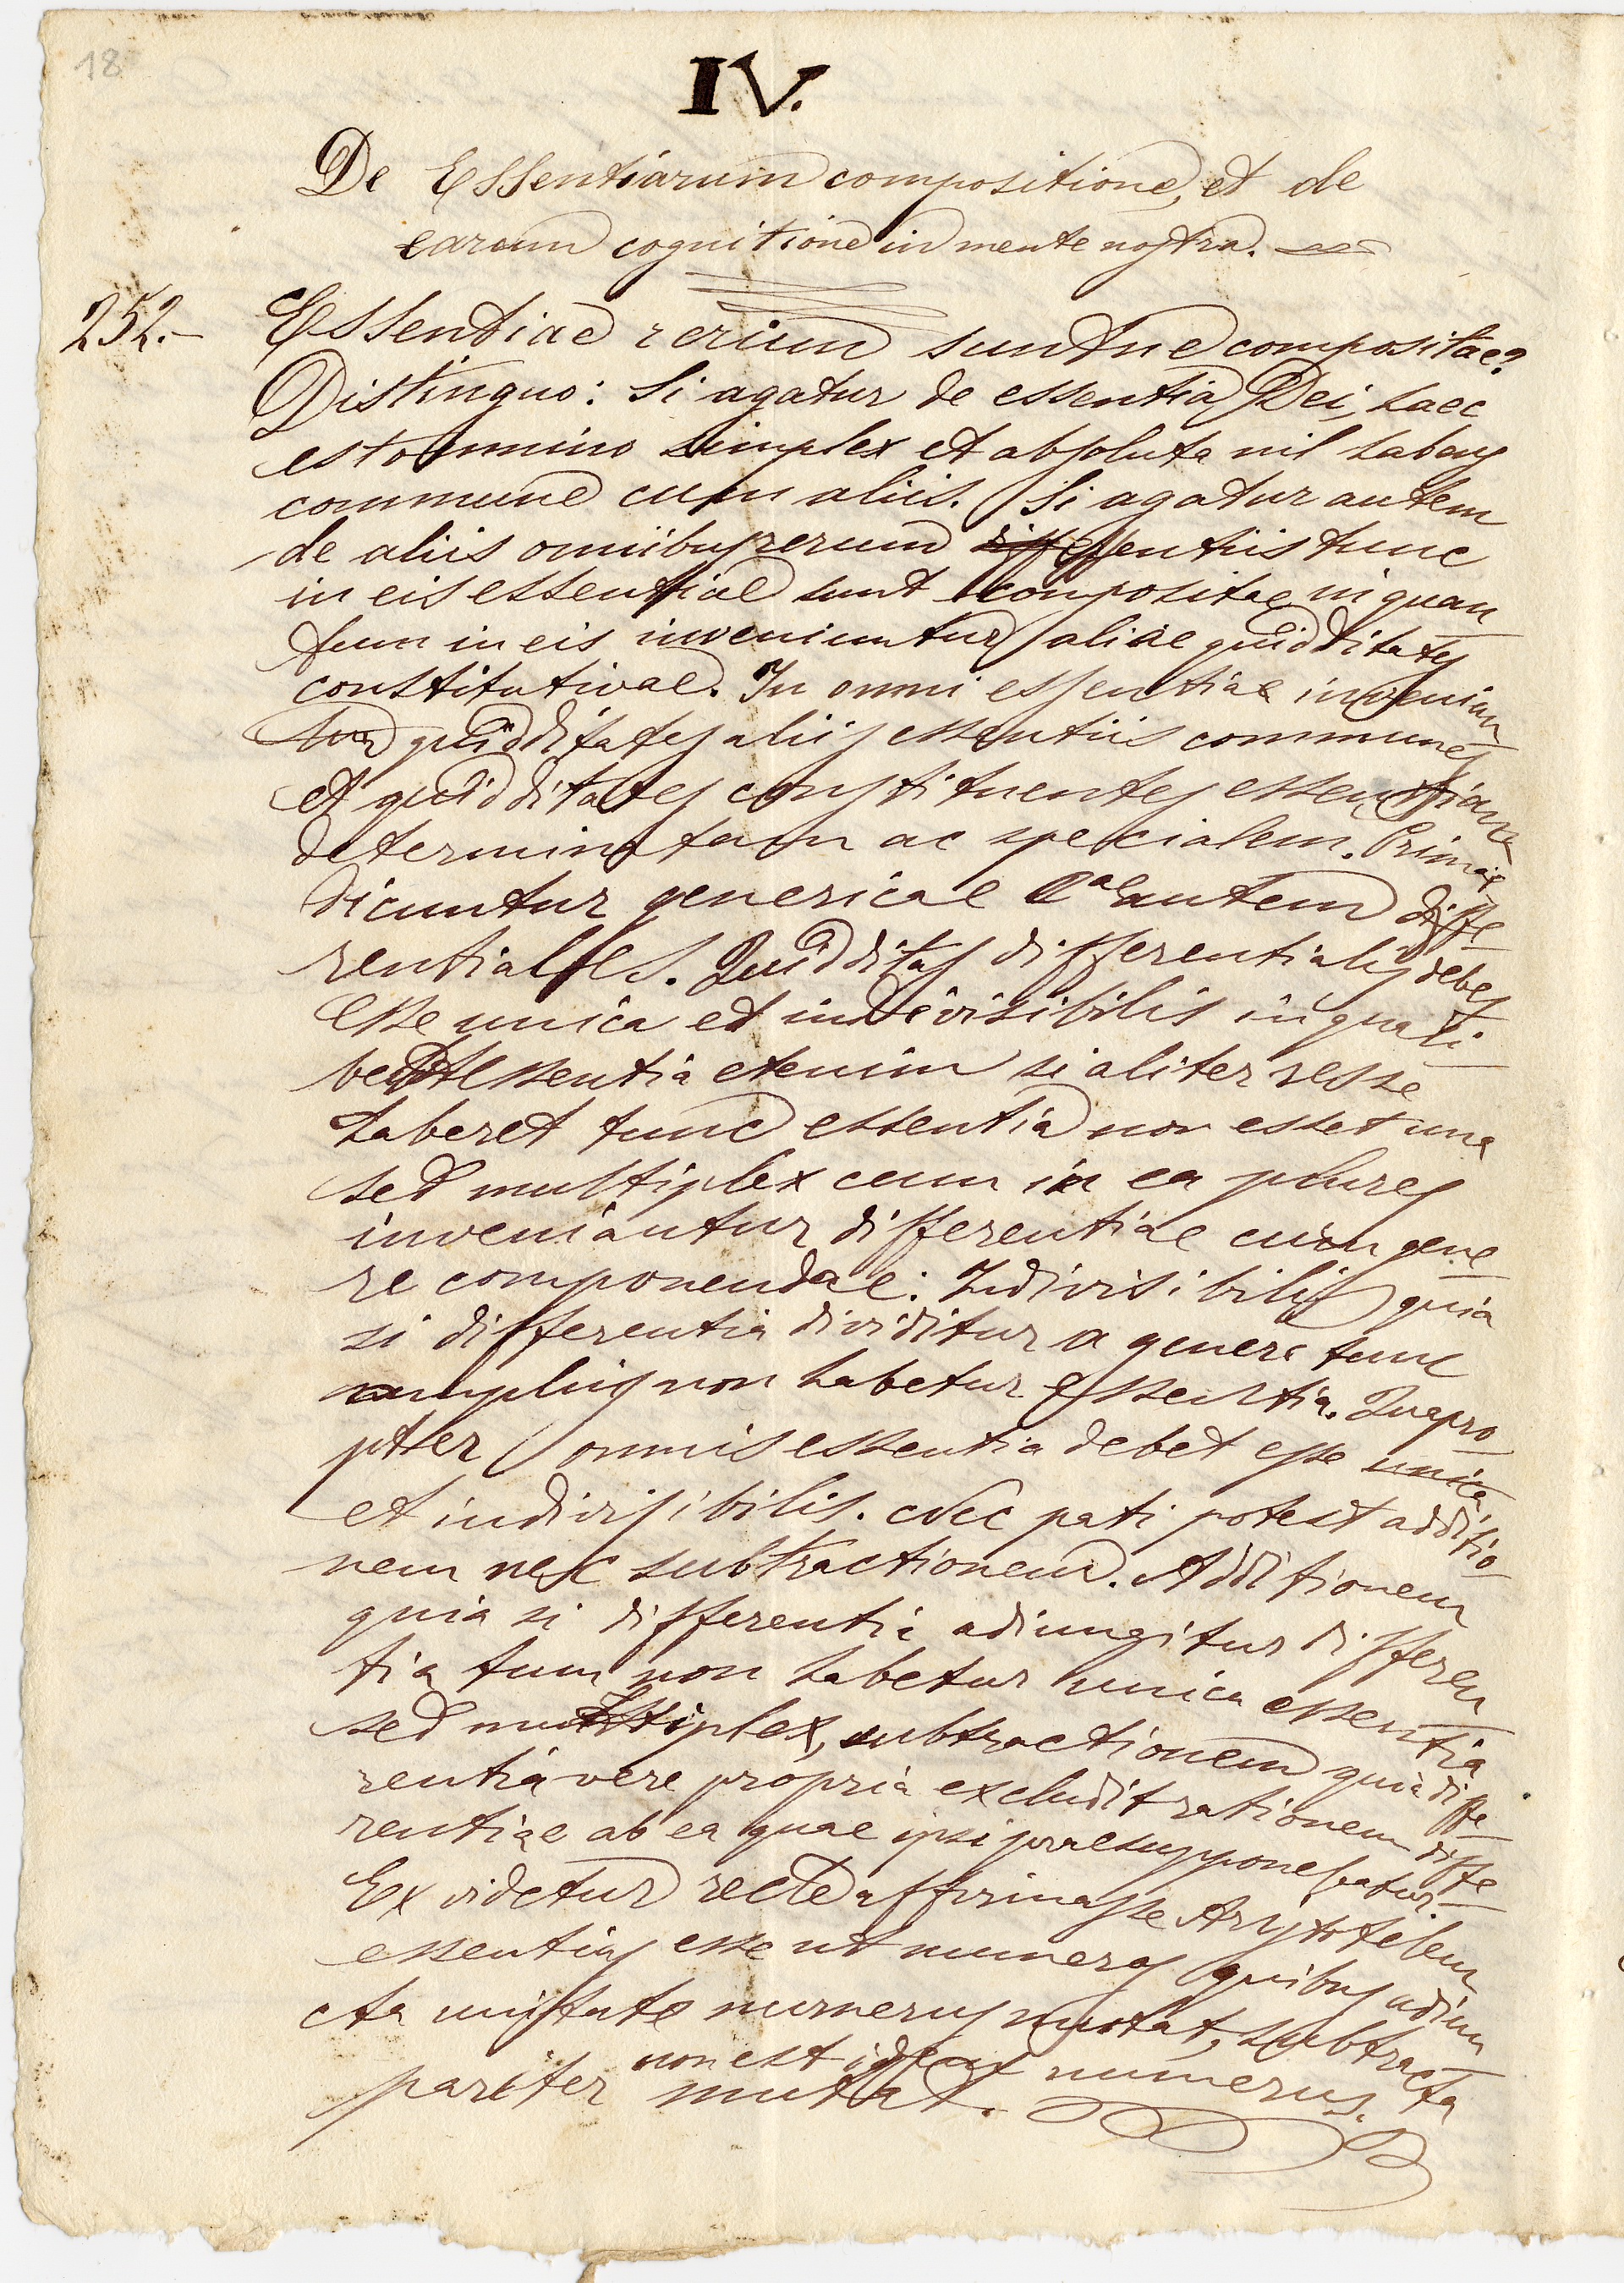 18
IV.
De Essentiarum compositione, et de
earum cognitione in mente nostra.
252.- Essentiae rerum suntne compositae?
Distinguo: Si agatur de essentia Dei, haec
est omnino simplex et absoluta nil habens
commune cum aliis. Si agatur autem
de aliis omnibus rerum essentiis tunc
in eis essentiae sunt compositae in quan
tum in eis inveniuntur aliae quidditates
constitutivae. In omni essentia invenian
tur quidditates aliis essentiis communes
et quidditates constituentes essentiam
determinatam ac specialem. Primae
dicuntur genericae 2ae autem diffe-
rentiales. Quidditas differentialis debet
esse unica et indivisibilis in quali-
bet essentia etenim si aliter res se
haberet tunc essentia non esset una
sed multiplex cum in ea plures
inveniantur differentiae cum gene-
re componendae: Indivisibilis quia
si differentia dividitur a genere tunc
amplius non habetur essentia. Quapro-
pter omnis essentia debet esse unica
et indivisibilis. Nec pati potest additio-
nem nec subtractionem. Additionem
quia si differentia adiungitur differen
tia tum non habetur unica essentia
sed multiplex, subtractionem quia diffe-
rentia vere propria excludit rationem diffe-
rentiae ab ea quae ipsi praesupponebatur.
Ex videtur recte affirmasse Aristotelem
essentias esse ut numeros quibus adiun
cta unitate numerus mutat, subtracta
non est idem numerus.
pariter mutat.